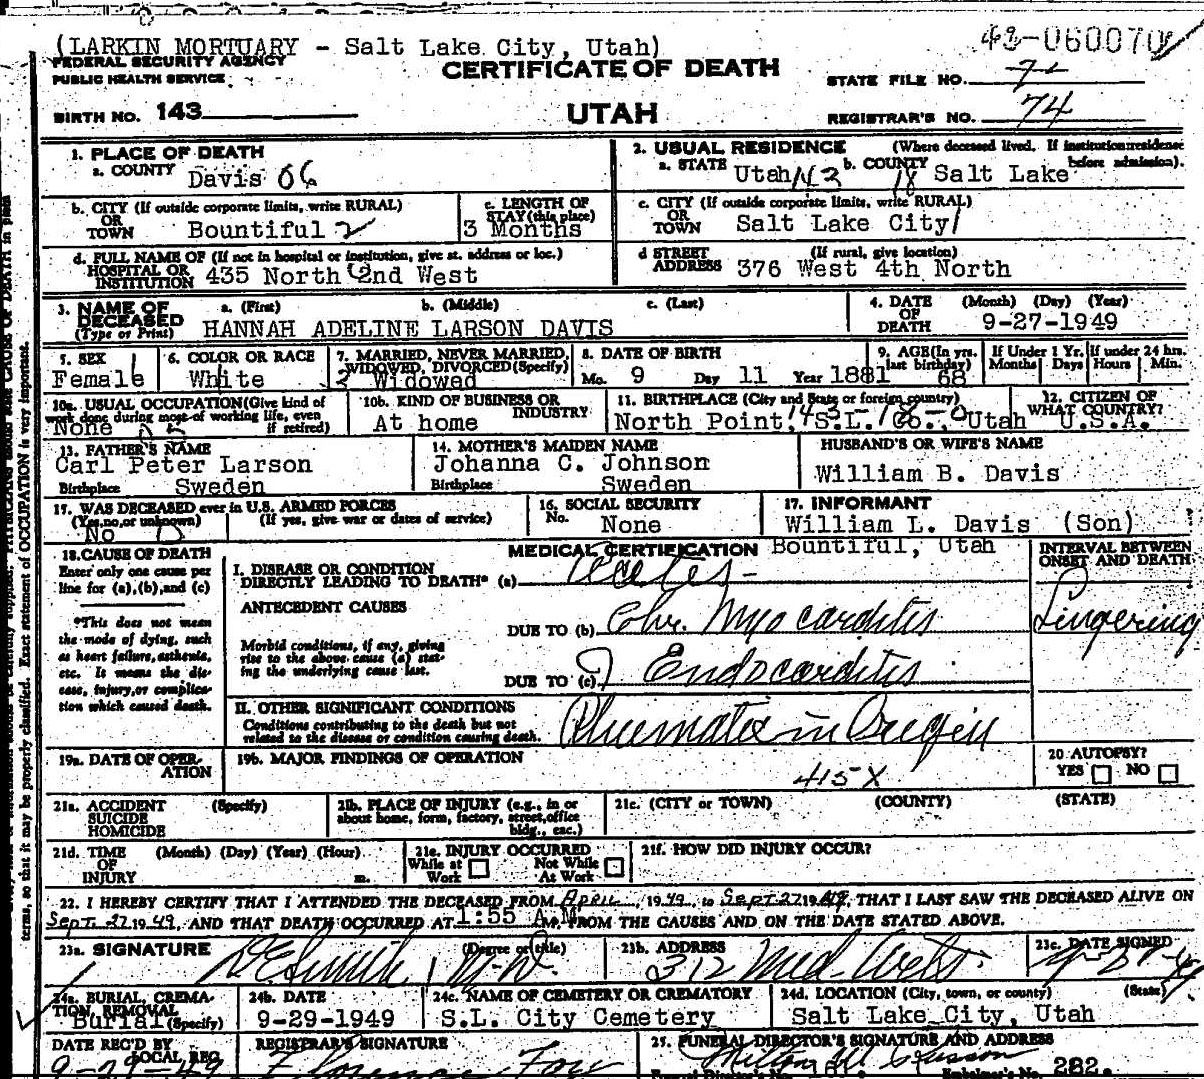 (LARKIN MORTUARY - Salt Lake City, Utah)
FEDERAL SECURITY AGENCY
PUBLIC HEALTH SERVICE
CERTIFICATE OF DEATH
43-060070
STATE FILE NO. 72
BIRTH NO. 143
UTAH
REGISTRAR'S NO. 74
1. PLACE OF DEATH
a. COUNTY Davis 06
2. USUAL RESIDENCE (Where deceased lived. If institution: residence before admission).
a. STATE Utah 43 b. COUNTY 18 Salt Lake
b. CITY (If outside corporate limits, write RURAL) OR TOWN Bountiful 2
c. LENGTH OF STAY (this place) 3 Months
c. CITY (If outside corporate limits, write RURAL) OR TOWN Salt Lake City 1
d. FULL NAME OF (If not in hospital or institution, give st. address or loc.) HOSPITAL OR INSTITUTION 435 North 2nd West
d STREET ADDRESS (If rural, give location) 376 West 4th North
3. NAME OF DECEASED (Type or Print) a. (First) b. (Middle) c. (Last)
HANNAH ADELINE LARSON DAVIS
4. DATE OF DEATH (Month) (Day) (Year) 9-27-1949
5. SEX Female
6. COLOR OR RACE White
7. MARRIED, NEVER MARRIED, WIDOWED, DIVORCED (Specify) 2 Widowed
8. DATE OF BIRTH Mo. 9 Day 11 Year 1881
9. AGE (In yrs. last birthday) 68
If Under 1 Yr. Months Days
If under 24 hrs. Hours Min.
10a. USUAL OCCUPATION (Give kind of work done during most of working life, even if retired) None
10b. KIND OF BUSINESS OR INDUSTRY At home
11. BIRTHPLACE (City and State or foreign country) North Point, S.L. Co., Utah
12. CITIZEN OF WHAT COUNTRY? U.S.A.
13. FATHER'S NAME Carl Peter Larson
Birthplace Sweden
14. MOTHER'S MAIDEN NAME Johanna C. Johnson
Birthplace Sweden
HUSBAND'S OR WIFE'S NAME William B. Davis
15. WAS DECEASED ever in U.S. ARMED FORCES (Yes, no, or unknown) (If yes, give war or dates of service) No 0
16. SOCIAL SECURITY No. None
17. INFORMANT William L. Davis (Son)
Bountiful, Utah
18. CAUSE OF DEATH
Enter only one cause per line for (a), (b), and (c)
*This does not mean the mode of dying, such as heart failure, asthenia, etc. It means the disease, injury, or complication which caused death.
MEDICAL CERTIFICATION
INTERVAL BETWEEN ONSET AND DEATH
I. DISEASE OR CONDITION DIRECTLY LEADING TO DEATH* (a)
ANTECEDENT CAUSES
Morbid conditions, if any, giving rise to the above cause (a) stating the underlying cause last.
DUE TO (b) Chr. Myocarditis
Lingering
DUE TO (c) Endocarditis
II. OTHER SIGNIFICANT CONDITIONS
Conditions contributing to the death but not related to the disease or condition causing death.
Rhumatic in Oregin
19a. DATE OF OPERATION
19b. MAJOR FINDINGS OF OPERATION
415X
20 AUTOPSY?
YES NO
21a. ACCIDENT SUICIDE HOMICIDE (Specify)
21b. PLACE OF INJURY (e.g., in or about home, form, factory, street, office bldg., etc.)
21c. (CITY or TOWN) (COUNTY) (STATE)
21d. TIME OF INJURY (Month) (Day) (Year) (Hour) m.
21e. INJURY OCCURRED While at Work Not While At Work
21f. HOW DID INJURY OCCUR?
22. I HEREBY CERTIFY THAT I ATTENDED THE DECEASED FROM April, 1949, to Sept 27 1949, THAT I LAST SAW THE DECEASED ALIVE ON
Sept. 27, 1949, AND THAT DEATH OCCURRED AT 1:55 A.M., FROM THE CAUSES AND ON THE DATE STATED ABOVE.
23a. SIGNATURE (Degree or title) M.D.
23b. ADDRESS 312 Med Arts.
23c. DATE SIGNED
24a. BURIAL, CREMATION, REMOVAL (Specify) Burial
24b. DATE 9-29-1949
24c. NAME OF CEMETERY OR CREMATORY S.L. City Cemetery
24d. LOCATION (City, town, or county) (State) Salt Lake City, Utah
DATE REC'D BY LOCAL REG. 9-29-49
REGISTRAR'S SIGNATURE
25. FUNERAL DIRECTOR'S SIGNATURE AND ADDRESS
Embalmer's No. 282.